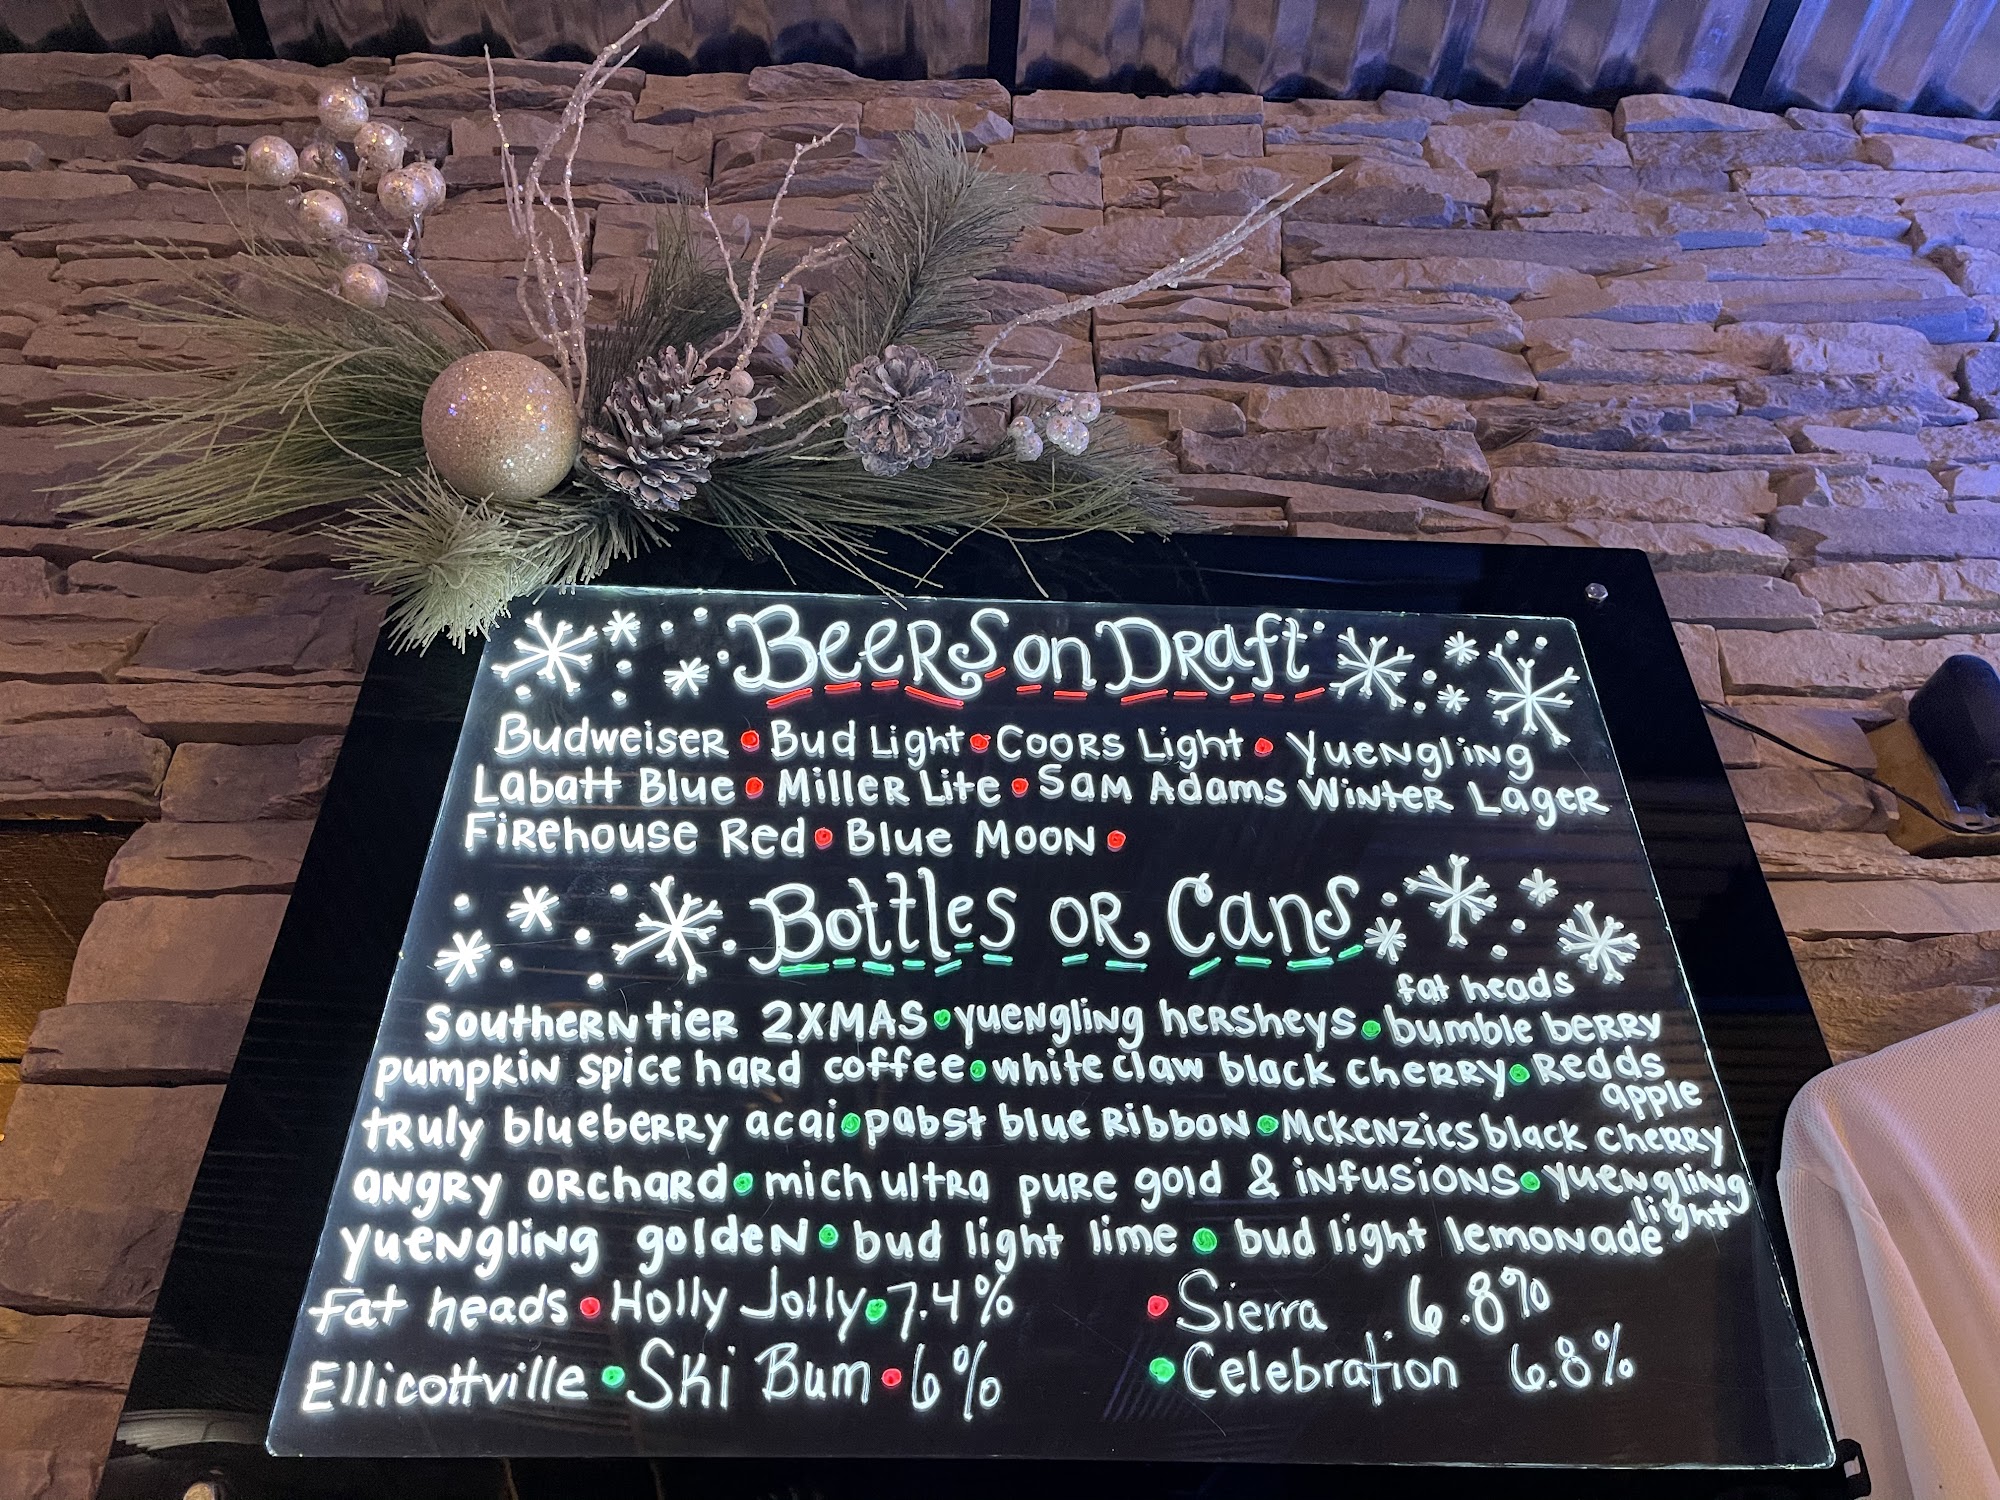 Beers on Draft
Budweiser • Bud Light • Coors Light • Yuengling
Labatt Blue • Miller Lite • Sam Adams Winter Lager
Firehouse Red • Blue Moon •
Bottles or Cans
fat heads
Southern tier 2XMAS • yuengling hersheys • bumble berry
pumpkin spice hard coffee • white claw black cherry • Redds
apple
truly blueberry acai • pabst blue Ribbon • Mckenzies black cherry
angry orchard • mich ultra pure gold & infusions • yuengling
light
yuengling golden • bud light lime • bud light lemonade
fat heads • Holly Jolly • 7.4% • Sierra 6.8%
Ellicottville • Ski Bum • 6% • Celebration 6.8%